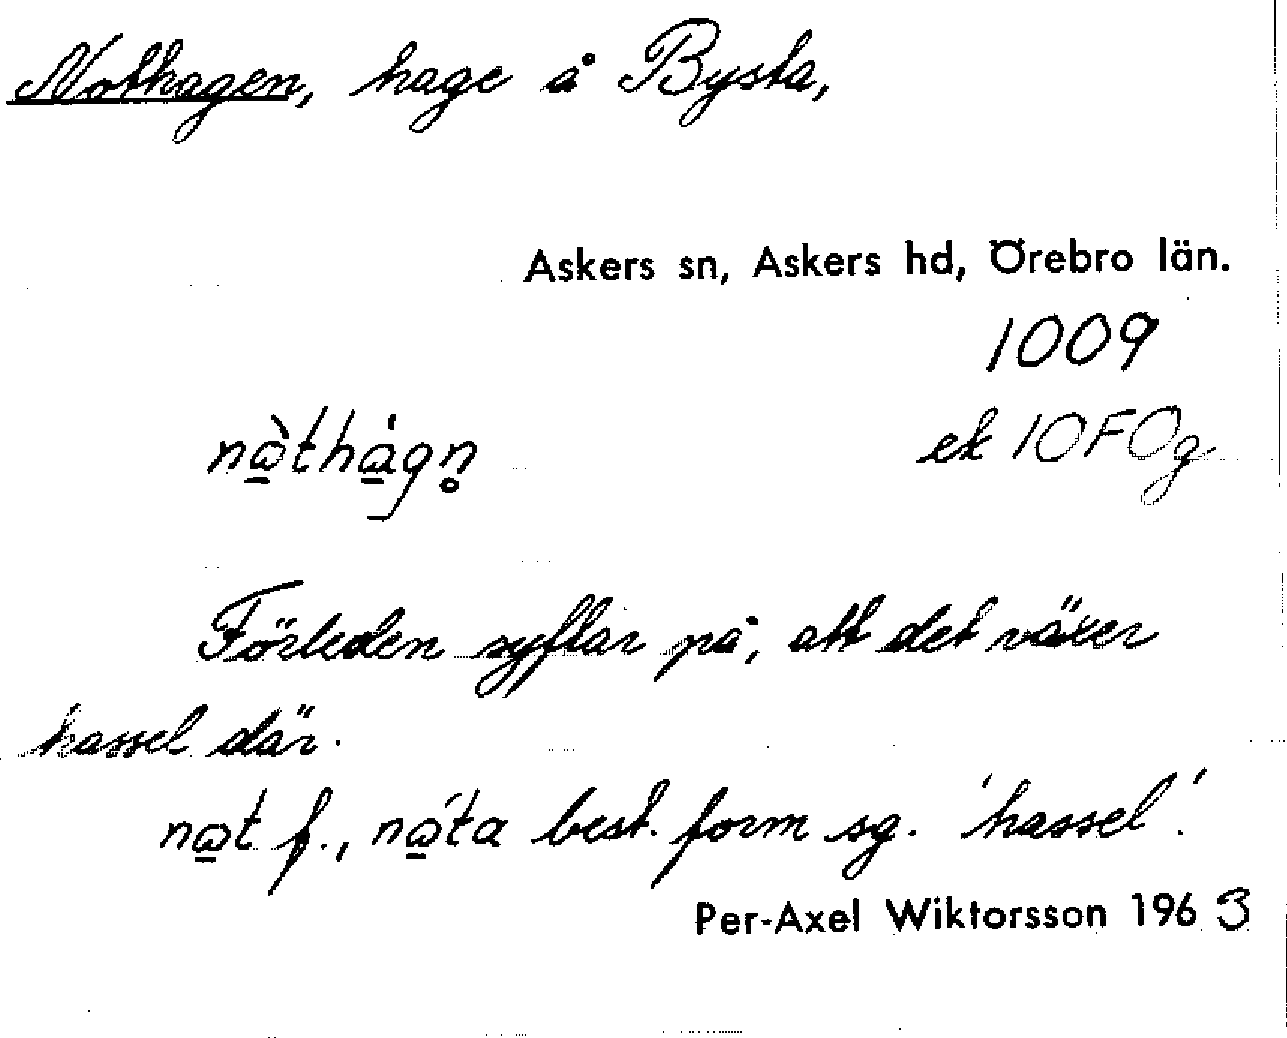 Nothagen, hage å Bysta,
Askers sn, Askers hd, Örebro län.
1009
nὰ̱thά̱gn̥
ek 10F0g
Förleden syftar på, att det växer
hassel där.
nα̱t f., nά̱ta best. form sg. 'hassel'.
Per-Axel Wiktorsson 1963